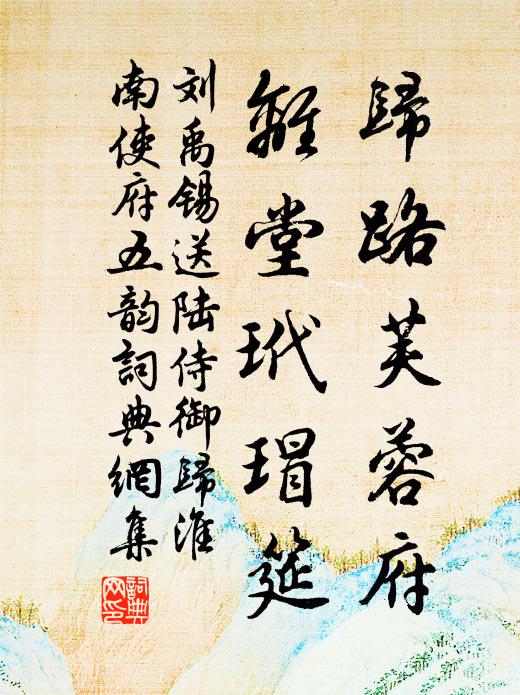 歸路芙蓉府
離堂玳瑁筵
刘禹锡送陆侍御歸淮
南使府五韵詞典網集
詞典
网印